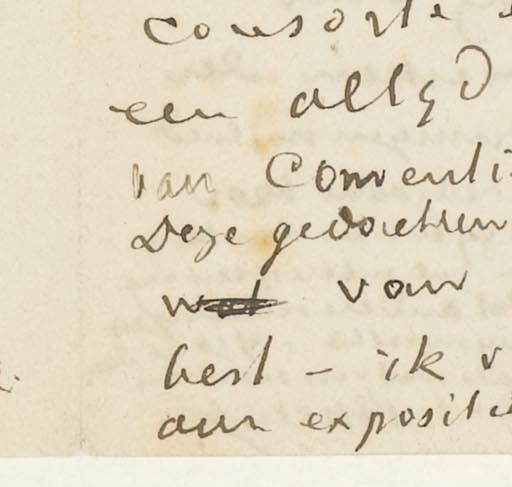 consorte
een altyd
van Conventi
Deze gedachten
van
best – ik v
aan expositi